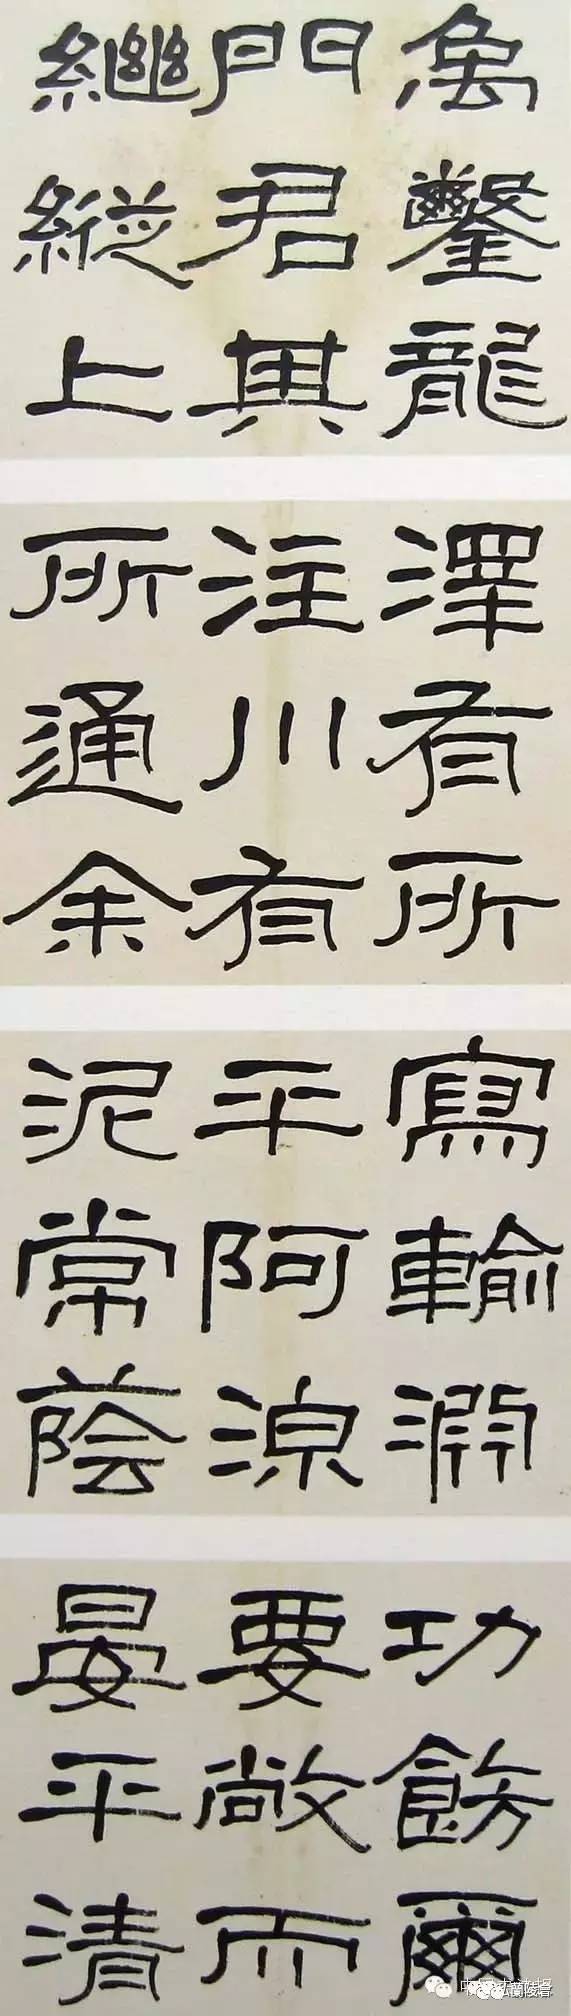 禹鑿龍
門君其
繼縱上
澤有所
注川有
所通余
寫輸淵
平阿湶
泥常蔭
功飭爾
要敞而
晏平清